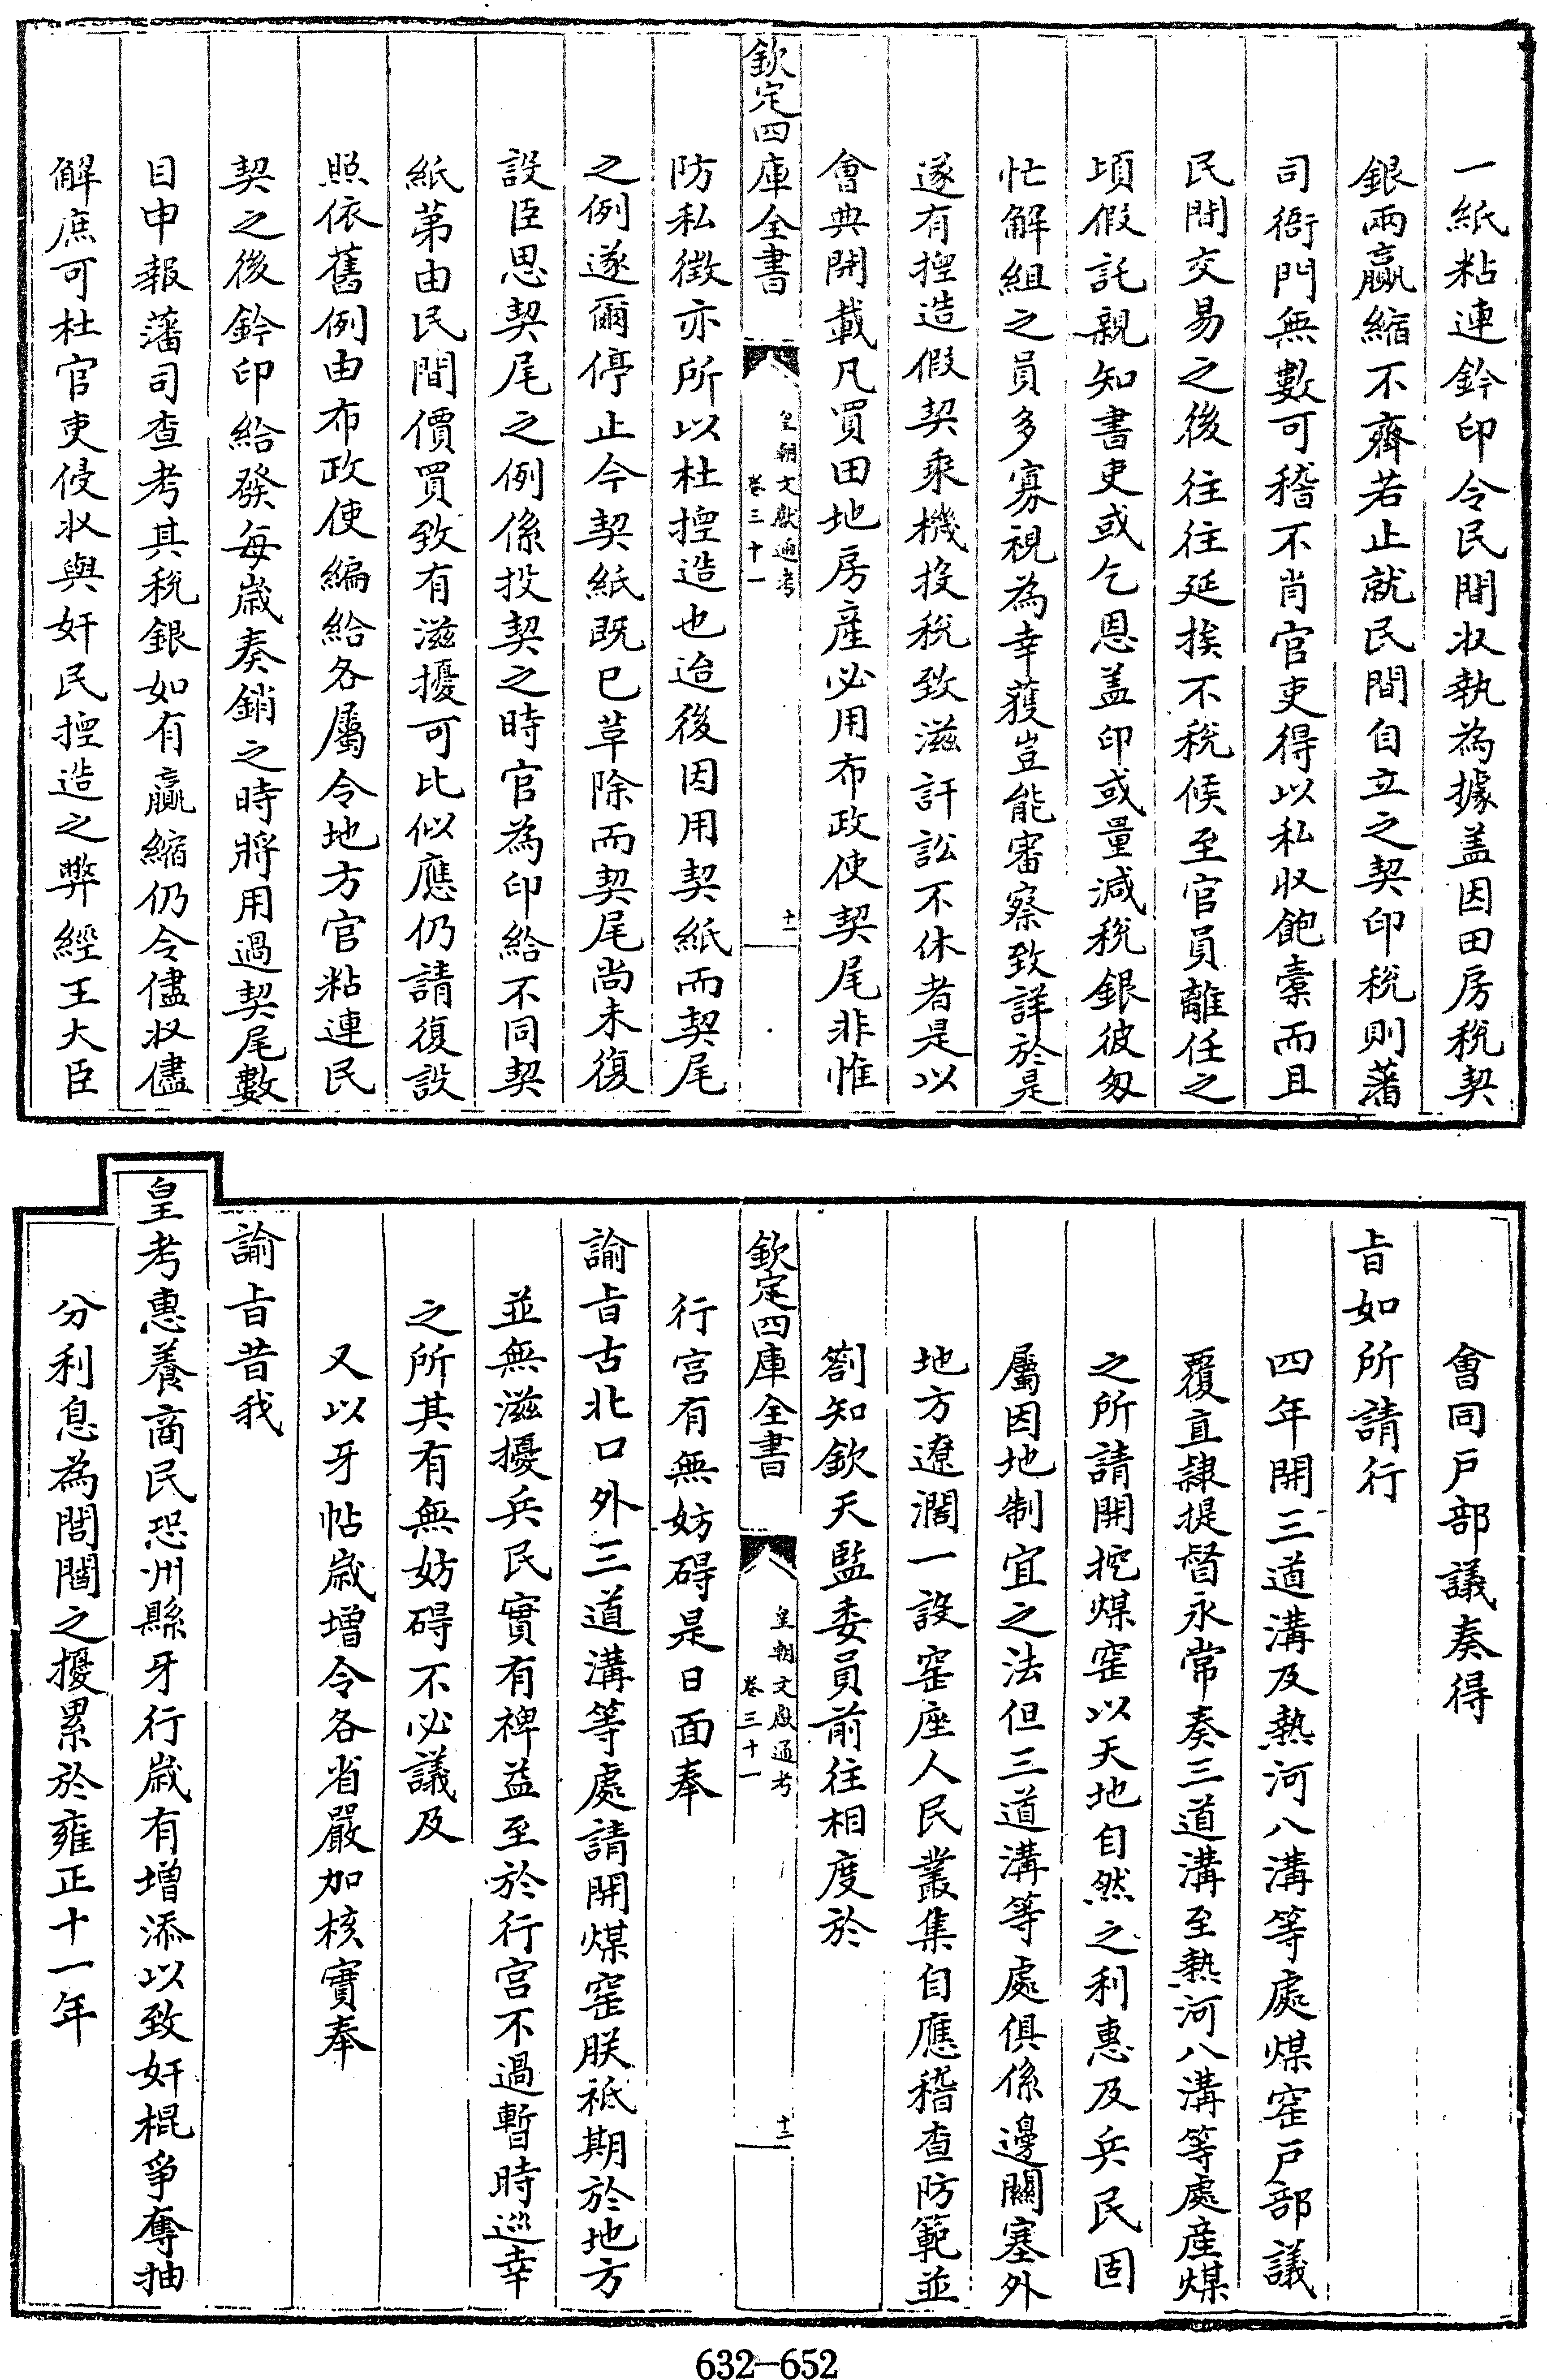 一紙粘連鈐印令民間収執為據盖因田房税契
銀兩贏縮不齊若止就民間自立之契印税則藩
司衙門無數可稽不肖官吏得以私収飽橐而且
民間交易之後往往延挨不税候至官員離任之
頃假託親知書吏或乞恩盖印或量減税銀彼匆
忙解組之員多寡視為幸獲豈能審察致詳於是
遂有揑造假契乘機投税致滋訐訟不休者是以
會典開載凡買田地房産必用布政使契尾非惟
欽定四庫全書
皇朝文獻通考
卷三十一
十一
防私徴亦所以杜揑造也迨後因用契紙而契尾
之例遂爾停止今契紙既已草除而契尾尚未復
設臣思契尾之例係投契之時官為印給不同契
紙第由民間價買致有滋擾可比似應仍請復設
照依舊例由布政使編給各屬令地方官粘連民
契之後鈐印給發每歳奏銷之時將用過契尾數
目申報藩司查考其税銀如有贏縮仍令儘収儘
解庶可杜官吏侵収與奸民揑造之弊經王大臣
會同戸部議奏得
㫖如所請行
四年開三道溝及熱河八溝等處煤窑戸部議
覆直隸提督永常奏三道溝至熱河八溝等處産煤
之所請開挖煤窑以天地自然之利惠及兵民固
屬因地制宜之法但三道溝等處俱係邊關塞外
地方遼濶一設窑座人民叢集自應稽查防範並
劄知欽天監委員前往相度於
欽定四庫全書
皇朝文獻通考
卷三十一
十二
行宫有無妨碍是日面奉
諭㫖古北口外三道溝等處請開煤窑朕祗期於地方
並無滋擾兵民實有裨益至於行宫不過暫時巡幸
之所其有無妨碍不必議及
又以牙帖歳增令各省嚴加核實奉
諭㫖昔我
皇考惠養商民恐州縣牙行歳有增添以致奸棍爭奪抽
分利息為閭閻之擾累於雍正十一年
632-652